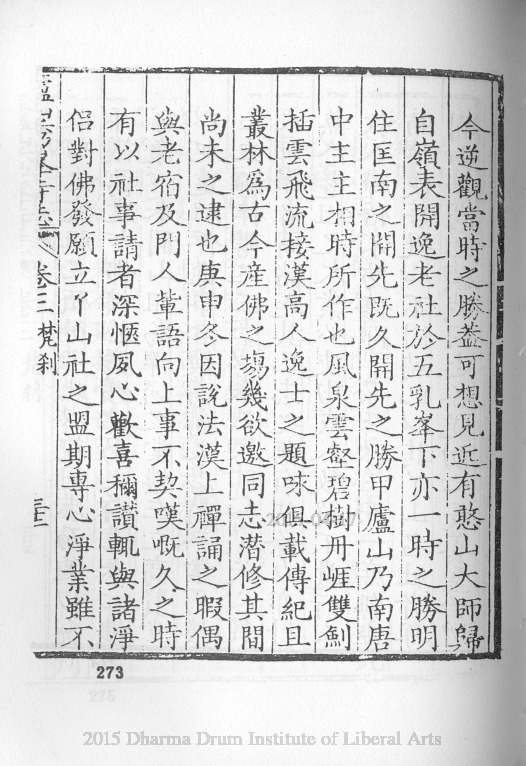 今逆觀當時之勝蓋可想見近有憨山大師歸
自嶺表開逸老社於五乳峯下亦一時之勝明
住匡南之開先既久開先之勝甲廬山乃南唐
中主主相時所作也風泉雲壑碧樹丹崕雙劎
插雲飛流接漢高人逸士之題咏俱載傳紀且
叢林爲古今産佛之塲幾欲邀同志潛修其間
尚未之逮也庚申冬因說法漢上禪誦之暇偶
與老宿及門人軰語向上事不契嘆嘅久之時
有以社事請者深愜夙心歡喜稱讃輒與諸淨
侶對佛發願立丫山社之盟期專心淨業雖不
卷三 梵刹
三二
273
2015 Dharma Drum Institute of Liberal Arts